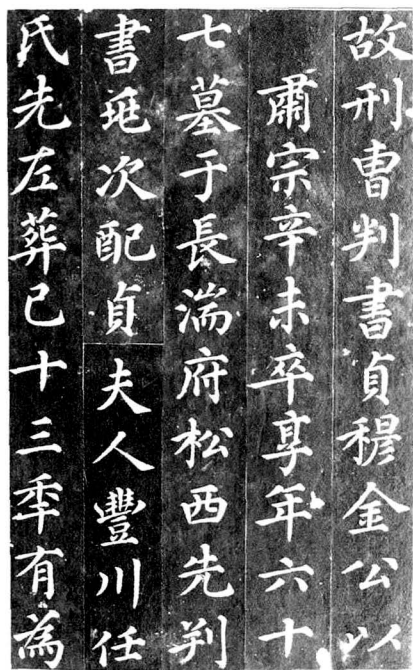 故刑曺判書貞穆金公以
肅宗辛未卒享年六十
七墓于長湍府松西先判
書垗次配貞夫人豐川任
氏先左葬已十三秊有為